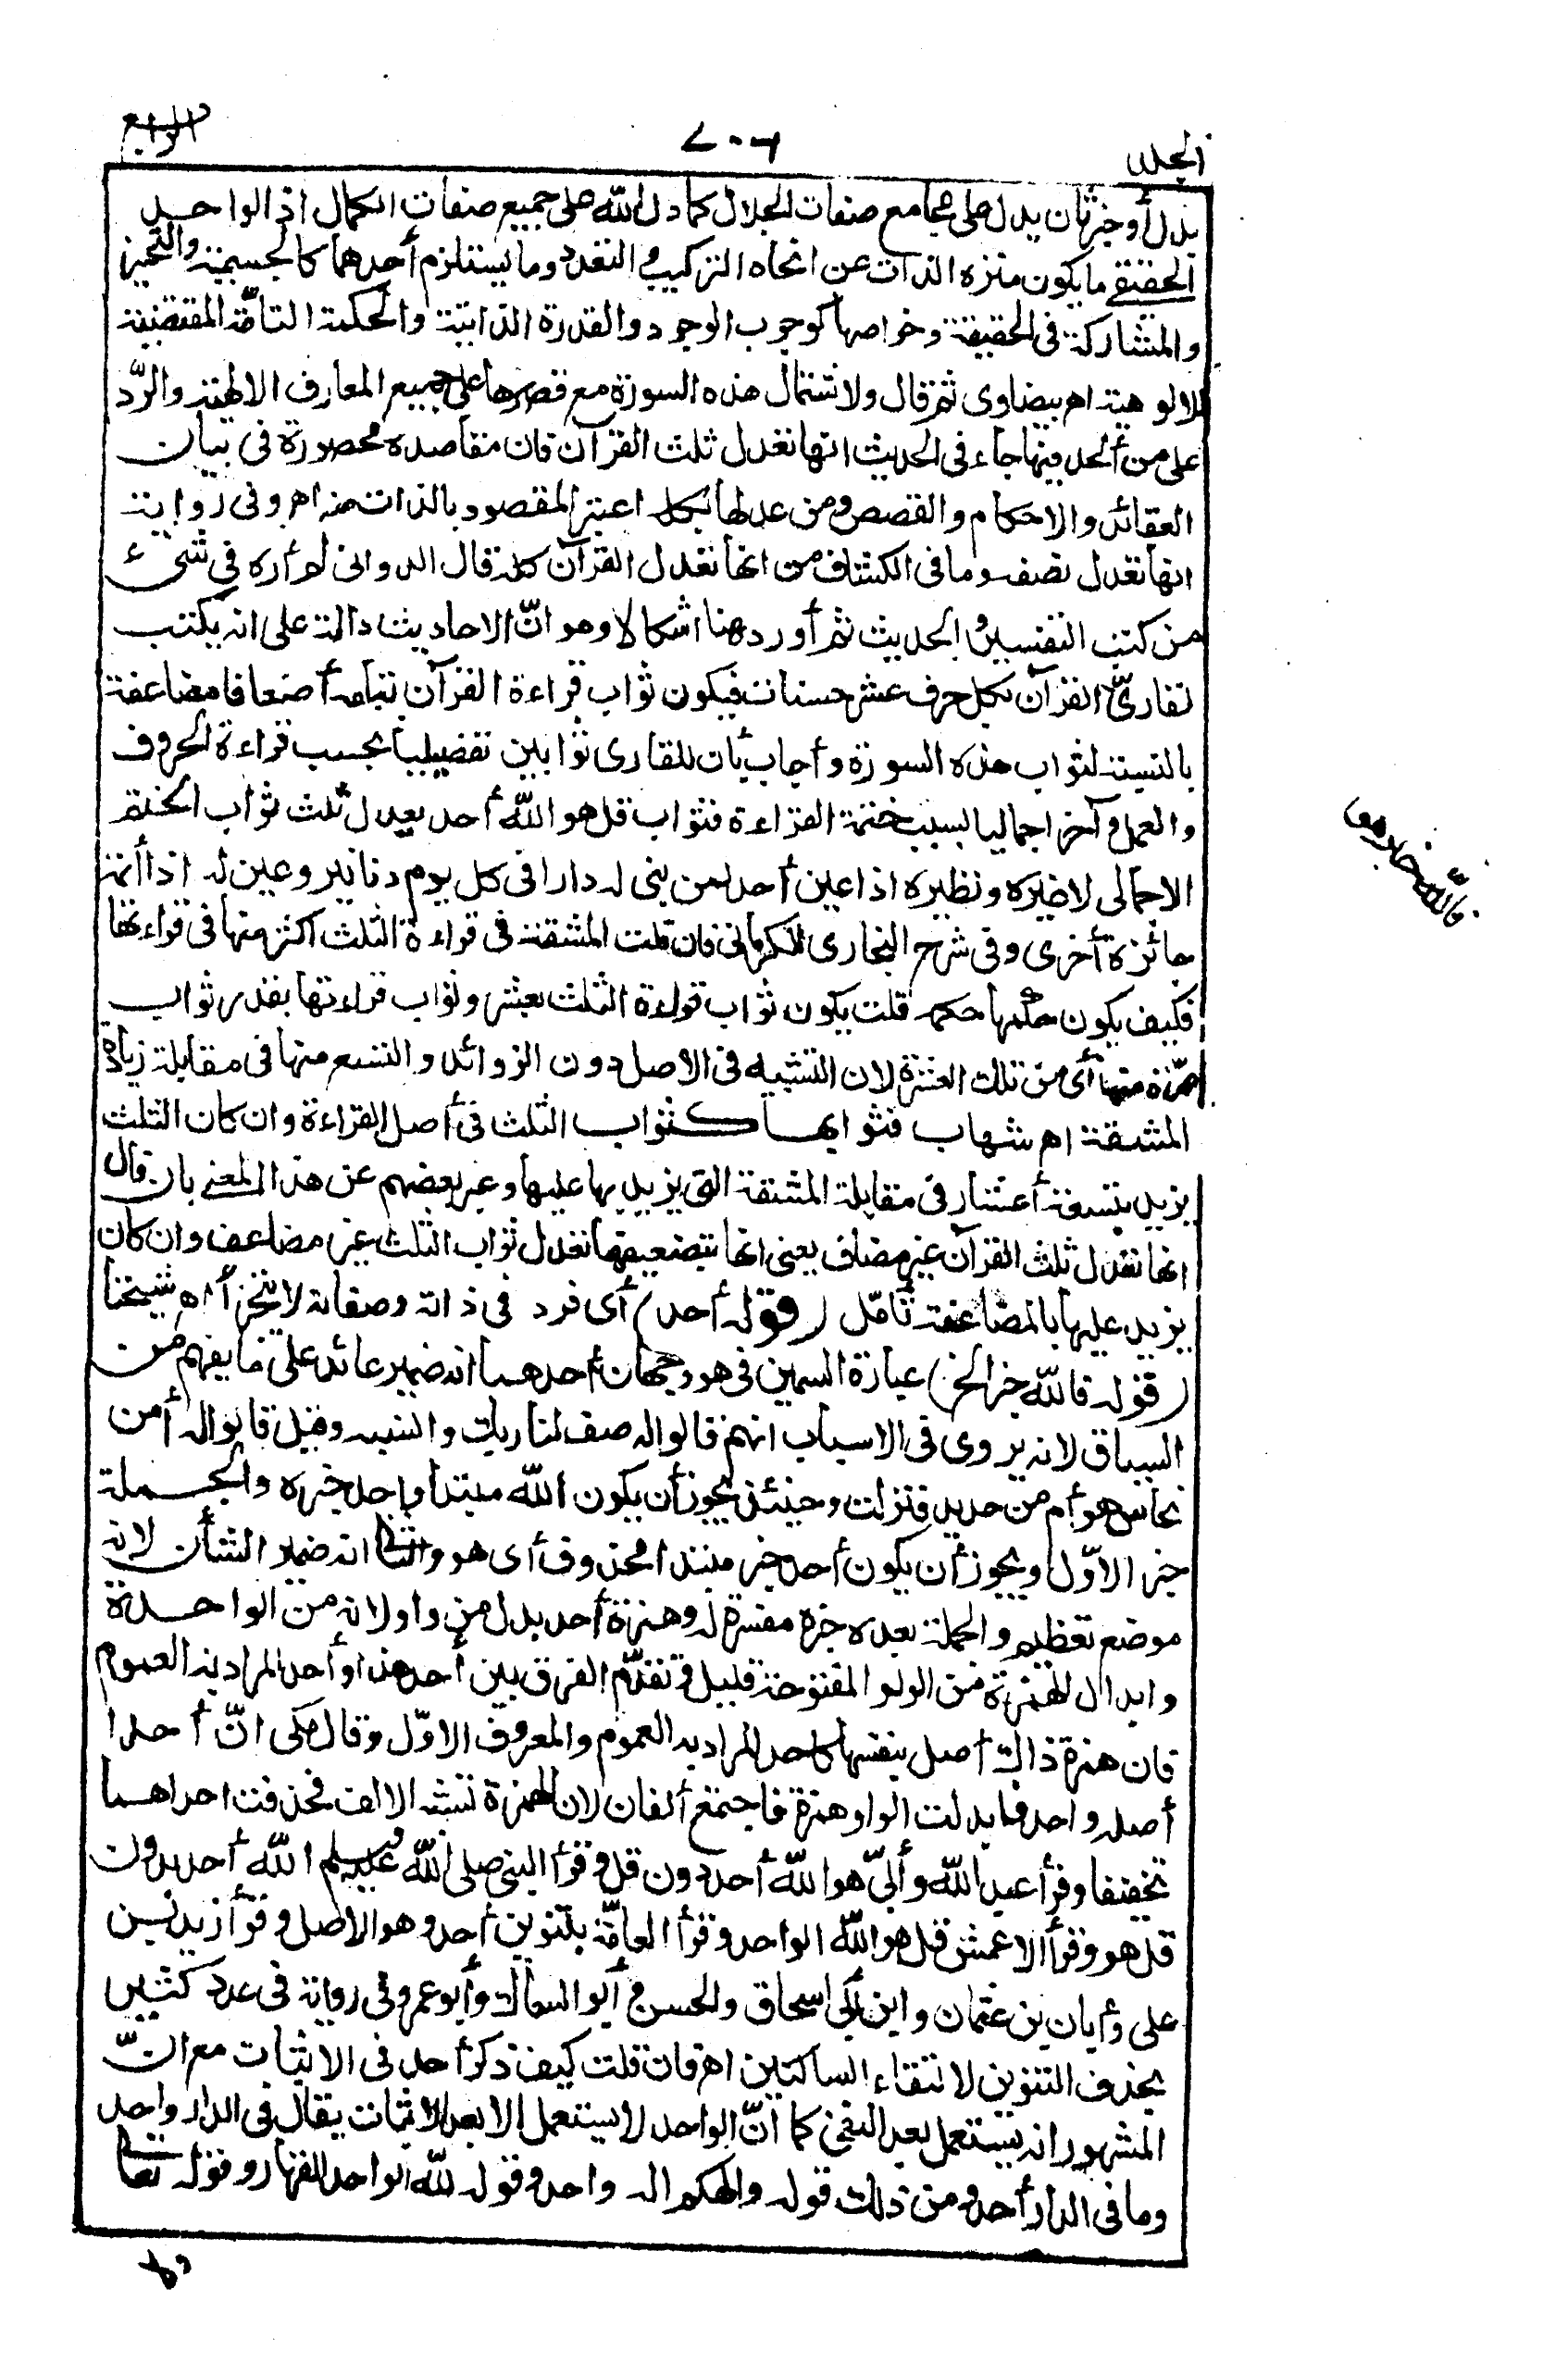 المجلد
٧٠٦
الرابع
بدل أو خبر ثان يدل على مجامع صفات الجلال كما دل الله على جميع صفات الكمال اذ الواحد
الحقيقي ما يكون منزه الذات عن انحاء التركيب والتعدد وما يستلزم أحدهما كالجسمية والتحيز
والمشاركة في الحقيقة وخواصها كوجوب الوجود والقدرة الذاتية والحكمة التامّة المقتضية
للالوهية اه بيضاوى ثم قال ولاشتمال هذه السورة مع قصرها على جميع المعارف الالهية والردّ
على من ألحد فيها جاء في الحديث انها تعدل ثلث القرآن فان مقاصده محصورة في بيان
العقائد والاحكام والقصص ومن عدلها بكله اعتبر المقصود بالذات منه اه وفى رواية
انها تعدل نصفه وما فى الكشاف من انها تعدل القرآن كله قال الدوانى لم أره في شىء
من كتب التفسير والحديث ثم أورد هنا اشكالا وهو انّ الاحاديث دالة على انه يكتب
لقارئ القرآن بكل حرف عشر حسنات فيكون ثواب قراءة القرآن بتمامه أضعافا مضاعفة
بالنسبة لثواب هذه السورة وأجاب بأن للقارى ثوابين تفضيليا بحسب قراءة الحروف
والعمل وآخر اجماليا بسبب ختمة القراءة فثواب قل هو الله أحد يعدل ثلث ثواب الختم
الاجمالى لا غيره ونظيره اذا عين أحد لمن يبنى له دارا فى كل يوم دنانير وعين له اذا أتمه
جائزة أخرى وفى شرح البخارى للكرمانى فان قلت المشقة في قراءة الثلث أكثر منها فى قراءتها
فكيف يكون حكمها حكمه قلت يكون ثواب قراءة الثلث بعشر وثواب قراءتها بقدر ثواب
مرّة منها أى من تلك العشرة لان التشبيه فى الاصل دون الزوائد والتسع منها فى مقابلة زيادة
المشقة اه شهاب فثوابها كثواب الثلث فى أصل القراءة وان كان الثلث
يزيد بتسعة أعشار فى مقابلة المشقة التى يزيد بها عليها وعبر بعضهم عن هذا المعنى بان قال
انها تعدل ثلث القرآن غير مضاف يعنى انها بتضعيفها تعدل ثواب الثلث غير مضاعف وان كان
يزيد عليها بالمضاعفة تأمّل (قوله أحد) أى فرد فى ذاته وصفاته لا يتجزأ اه شيخنا
(قوله فالله خبر الخ) عبارة السمين فى هو وجهان أحدهما انه ضمير عائد على ما يفهم من
السياق لانه يروى فى الاسباب انهم قالوا له صف لنا ربك وانسبه وقيل قالوا له أمن
نحاس هو أم من حديد فنزلت وحينئذ يجوز أن يكون الله مبتدأ وأحد خبره والجملة
خبر الاوّل ويجوز أن يكون أحد خبر مبتدا محذوف أى هو والثانى انه ضمير الشأن لانه
موضع تعظيم والجملة بعده خبره مفسرة له وهمزة أحد بدل من واو لانه من الواحدة
وابدال الهمزة من الواو المفتوحة قليل وتقدّم الفرق بين أحد هذا وأحد المراد به العموم
فان همزة ذاك أصل بنفسها كاحد المراد به العموم والمعروف الاوّل وقال مكى انّ أحدا
أصله واحد فابدلت الواو همزة فاجتمع ألفان لان الهمزة تشبه الالف فحذفت احداهما
تخفيفا وقرأ عبد الله وأبىّ هو الله أحد دون قل وقرأ النبى صلى الله عليه وسلم الله أحد بدون
قل هو وقرأ الاعمش قل هو الله الواحد وقرأ العامّة بتنوين أحد وهو الاصل وقرأ زيد بن
على وأبان بن عثمان وابن أبى اسحاق والحسن وأبو السمال وأبو عمرو فى رواية فى عدد كثير
بحذف التنوين لالتقاء الساكنين اه فان قلت كيف ذكر أحد فى الاثبات مع انّ
المشهور انه يستعمل بعد النفى كما انّ الواحد لا يستعمل الا بعد الاثبات يقال فى الدار واحد
وما فى الدار أحد ومن ذلك قوله والهكم اله واحد وقوله لله الواحد القهار وقوله تعالى
فالله خبر هو